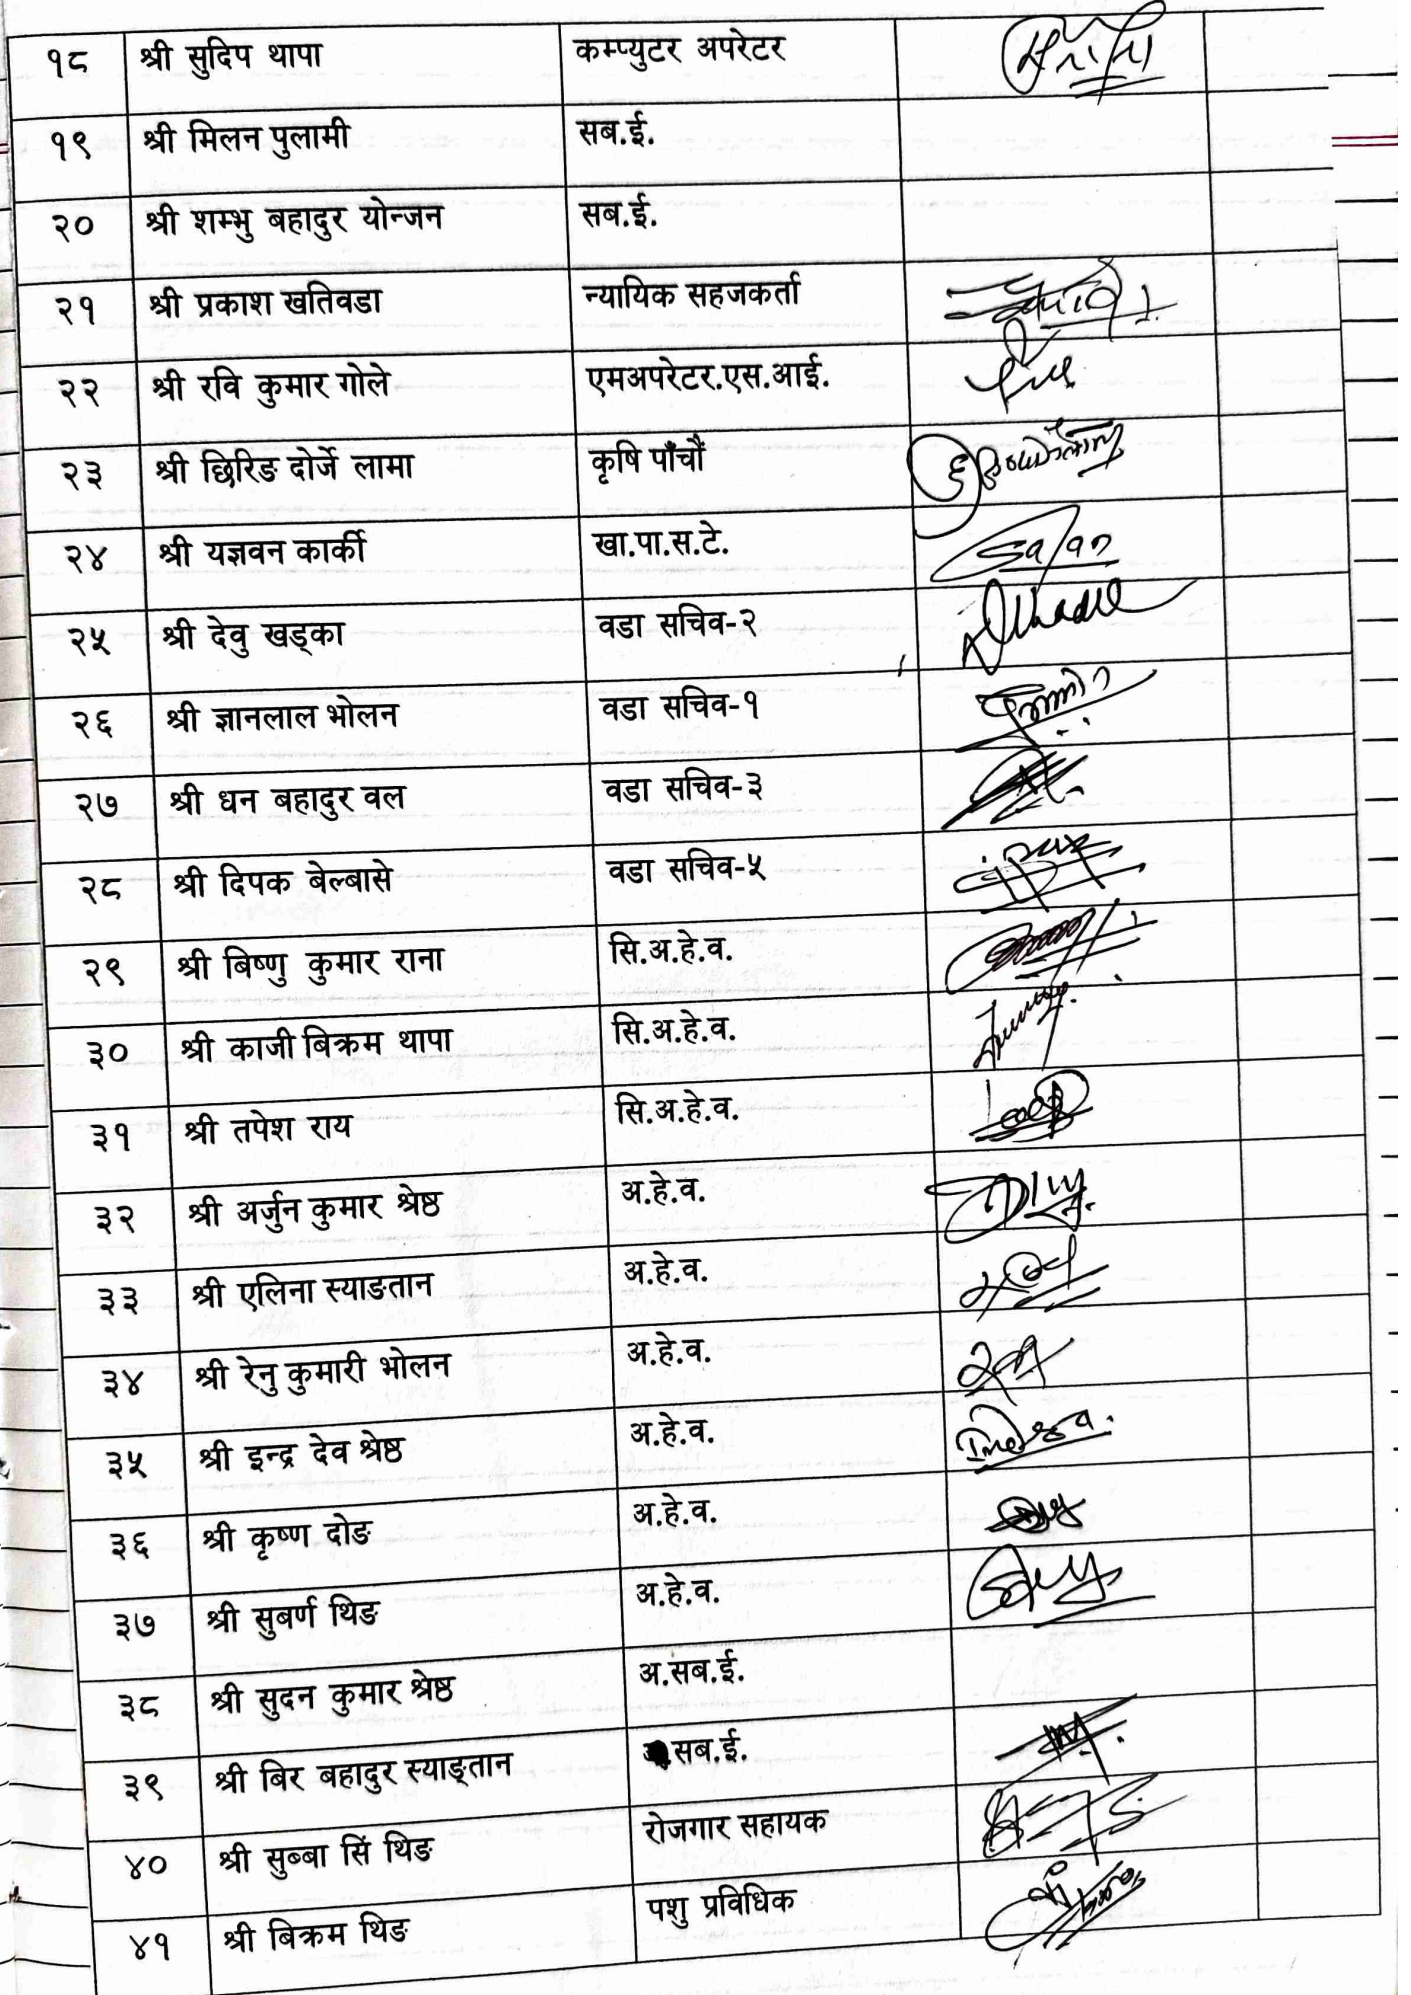 १८ श्री सुदिप थापा कम्प्युटर अपरेटर
१९ श्री मिलन पुलामी सब.ई.
२० श्री शम्भु बहादुर योन्जन सब.ई.
२१ श्री प्रकाश खतिवडा न्यायिक सहजकर्ता
२२ श्री रवि कुमार गोले एमअपरेटर.एस.आई.
२३ श्री छिरिङ दोर्जे लामा कृषि पाँचौं
२४ श्री यज्ञवन कार्की खा.पा.स.टे. Sajan
२५ श्री देवु खड्का वडा सचिव-२
२६ श्री ज्ञानलाल भोलन वडा सचिव-१
२७ श्री धन बहादुर वल वडा सचिव-३
२८ श्री दिपक बेल्बासे वडा सचिव-५
२९ श्री बिष्णु कुमार राना सि.अ.हे.व.
३० श्री काजी बिक्रम थापा सि.अ.हे.व.
३१ श्री तपेश राय सि.अ.हे.व.
३२ श्री अर्जुन कुमार श्रेष्ठ अ.हे.व.
३३ श्री एलिना स्याङतान अ.हे.व.
३४ श्री रेनु कुमारी भोलन अ.हे.व.
३५ श्री इन्द्र देव श्रेष्ठ अ.हे.व.
३६ श्री कृष्ण दोङ अ.हे.व.
३७ श्री सुबर्ण थिङ अ.हे.व.
३८ श्री सुदन कुमार श्रेष्ठ अ.सब.ई.
३९ श्री बिर बहादुर स्याङ्तान सब.ई.
४० श्री सुब्बा सिं थिङ रोजगार सहायक
४१ श्री बिक्रम थिङ पशु प्रविधिक